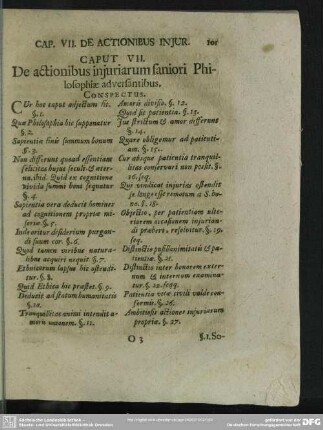 CAP. VII. DE ACTIONIBUS INJUR. 101
CAPUT VII.
De actionibus injuriarum saniori Phi-
losophiæ adversantibus.
CONSPECTUS.
CUr hoc caput adjectum sit.
§. 1.
Quæ Philosophia hic supponatur
§. 2.
Sapientiæ finis summum bonum
§. 3.
Non differunt quoad essentiam
felicitas hujus seculi & æter-
na. ibid. Quid ex cognitione
vividа summi boni sequatur
§. 4.
Sapientia vera deducit homines
ad cognitionem propriæ mi-
seriæ §. 5.
Inde oritur desiderium purgan-
di suum cor. §. 6.
Quid tamen viribus natura-
libus acquiri nequit. §. 7.
Ethnicorum lapsus hic ostendi-
tur. §. 8.
Quid Ethica hic præstet. §. 9.
Deducit ad statum humanitatis
§. 10.
Tranquillitas animi intendit a-
moris unionem. §. 11.
Amoris divisio. §. 12.
Quid sit patientia. §. 13.
Jus strictum & amor differunt
§. 14.
Quare obligemur ad patienti-
am. §. 15.
Cur absque patientia tranquil-
litas conservari non possit. §.
16. seq.
Qui vindicat injurias ostendit
se longe esse remotum a S. bo-
no. §. 18.
Objectio, per patientiam ulte-
riorem occasionem injurian-
di præberi, resolvitur. §. 19.
seq.
Distinctio pusillanimitatis & pa-
tientiæ. §. 21.
Distinctio inter honorem exter-
num & internum examina-
tur. §. 22. seqq.
Patientia vitæ civili valde con-
formis. §. 26.
Ambitiosis actiones injuriarum
propriæ. §. 27.
O 3
§. 1. So-